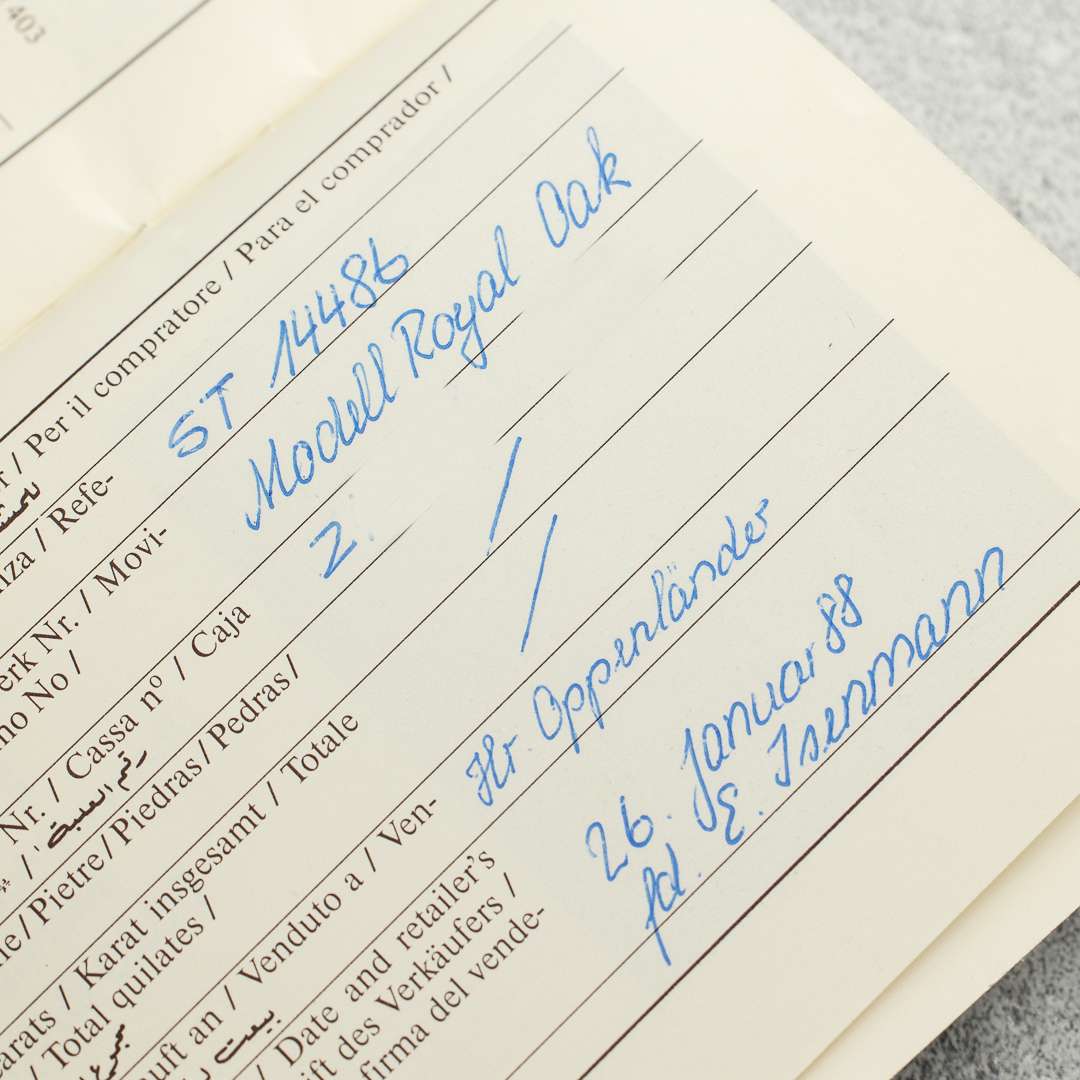 403
/ Per il compratore / Para el comprador /
ST 14486
/ Refe-
Modell Royal Oak
Nr. / Movi-
No /
2.
Nr. / Cassa nº / Caja
رقم العلبة /
/ Pietre / Piedras / Pedras /
/ Karat insgesamt / Totale
/ Total quilates /
Hr Oppenländer
an / Venduto a / Ven-
بيعت
26. Januar 88
/ Date and retailer's
des Verkäufers /
firma del vende-
E. Isenmann